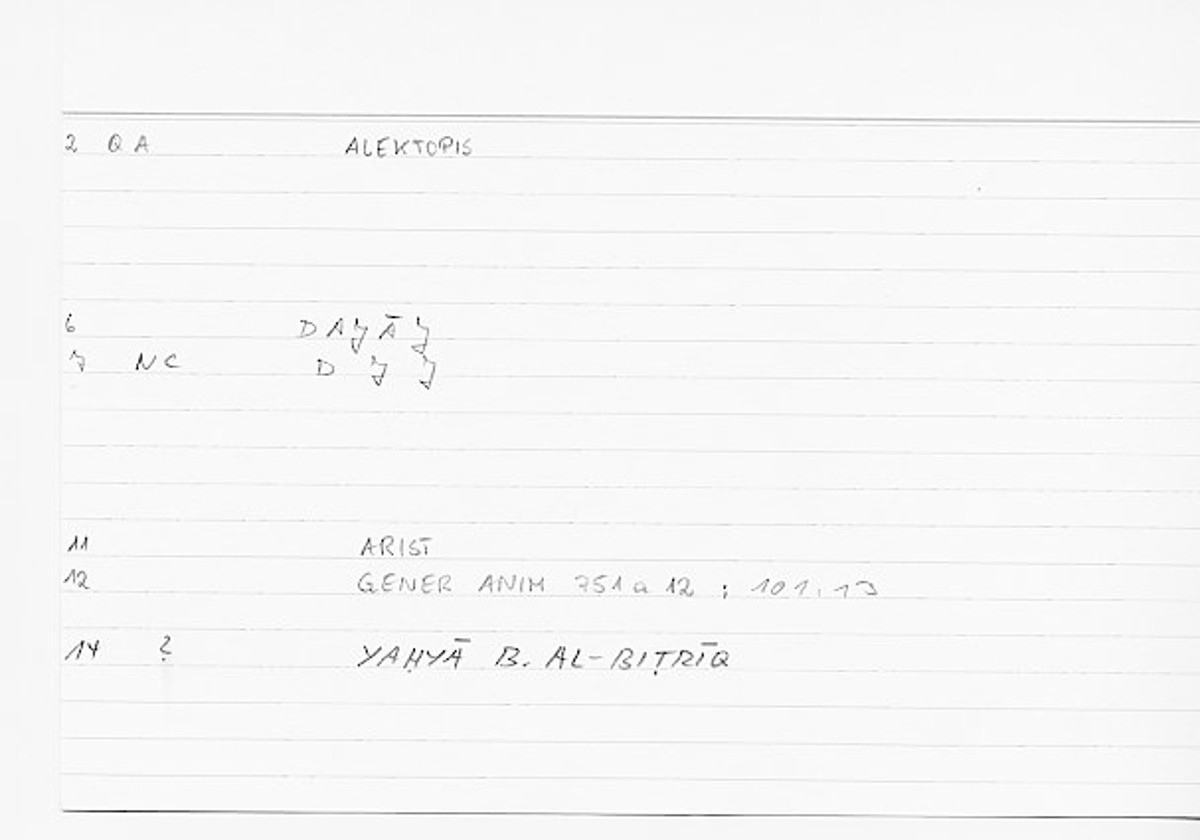 2 Q A ALEKTOPIS
6 DAǦĀǦ
7 NC D Ǧ Ǧ
11 ARIST
12 GENER ANIM 751a 12 ; 101.13
14 ? YAḤYĀ B. AL-BIṬRĪQ